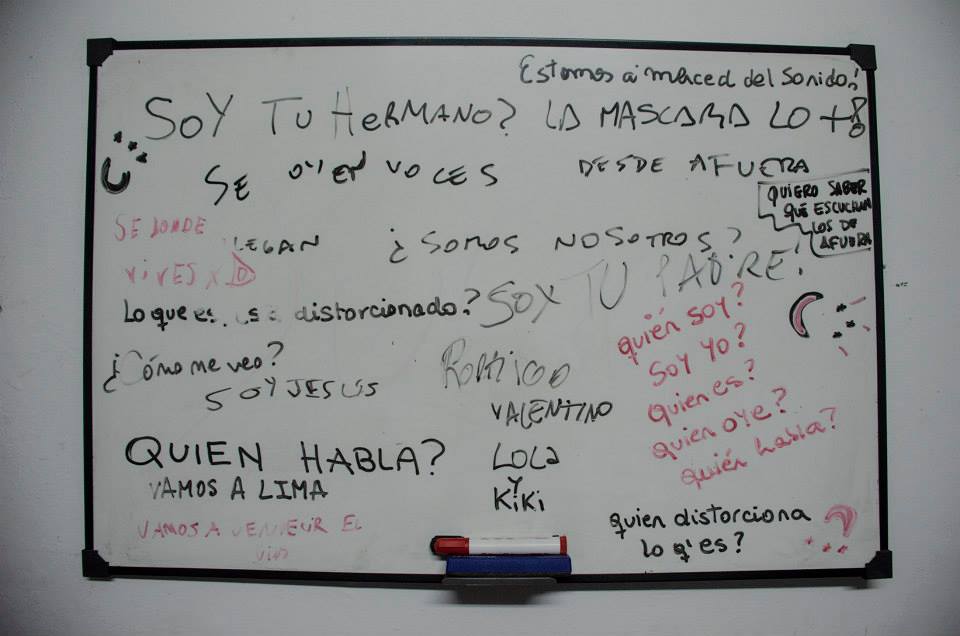 Estamos a merced del sonido!
SOY TU HERMANO? LA MASCARA LO +
SE OYEN VOCES DESDE AFUERA
QUIERO SABER
QUÉ ESCUCHAN
LOS DE
AFUERA
SE DONDE
LLEGAN ¿SOMOS NOSOTROS?
VIVES XD
SOY TU PADRE!
Lo que es distorcionado?
¿Cómo me veo?
SOY JESUS
quién soy?
SOY YO?
quien es?
quien oye?
quién habla?
VALENTINO
LOLA
Y
KiKi
QUIEN HABLA?
VAMOS A LIMA
VAMOS A EL
quien distorciona
lo q'es?